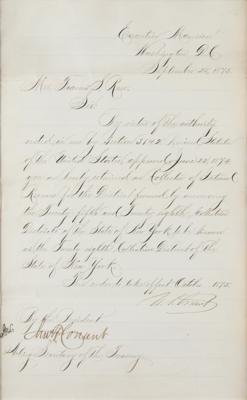 Executive Mansion
Washington D.C.
September 1875.
Mr. S.
Sir
By virtue of the authority
vested in me by Section 3142 Revised Statutes
of the United States, approved June 22, 1874
you are hereby retained as Collector of Internal
Revenue for the District formed by annexing
the Twenty fifth and Twenty eighth Collection
Districts of the State of New York to be known
as the Twenty eighth Collection District of the
State of New York.
This order to take effect October 1875.
U. S. Grant
By the President
Conant
Acting Secretary of the Treasury